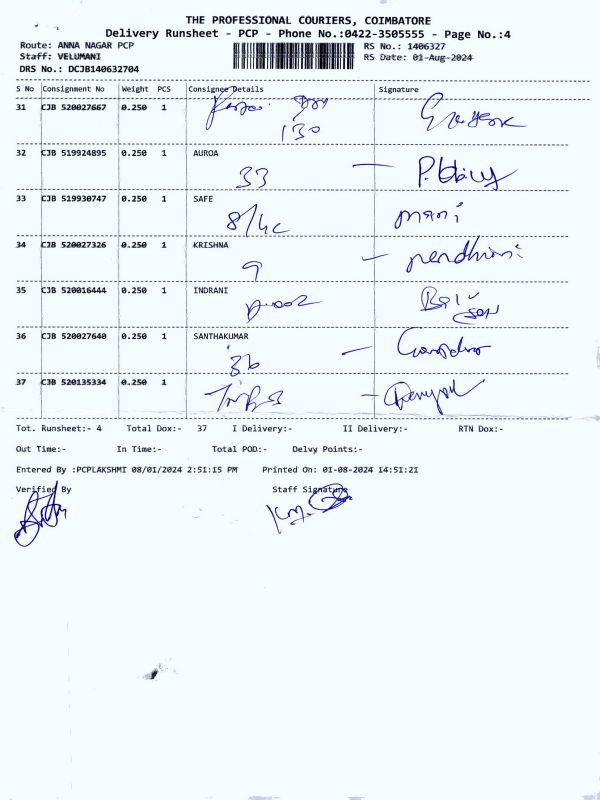 THE PROFESSIONAL COURIERS, COIMBATORE
Delivery Runsheet - PCP - Phone No.:0422-3505555 - Page No.:4
Route: ANNA NAGAR PCP
RS No.: 1406327
Staff: VELUMANI
RS Date: 01-Aug-2024
DRS No.: DCJB140632704
S No Consignment No Weight PCS Consignee Details Signature
31 CJB 520027667 0.250 1
130
32 CJB 519924895 0.250 1 AUROA
33
33 CJB 519930747 0.250 1 SAFE
8/4c mani
34 CJB 520027326 0.250 1 KRISHNA
9 nendhini
35 CJB 520016444 0.250 1 INDRANI
36 CJB 520027640 0.250 1 SANTHAKUMAR
36
37 CJB 520135334 0.250 1
Tot. Runsheet:- 4 Total Dox:- 37 I Delivery:- II Delivery:- RTN Dox:-
Out Time:- In Time:- Total POD:- Delvy Points:-
Entered By :PCPLAKSHMI 08/01/2024 2:51:15 PM Printed On: 01-08-2024 14:51:21
Verified By Staff Signature